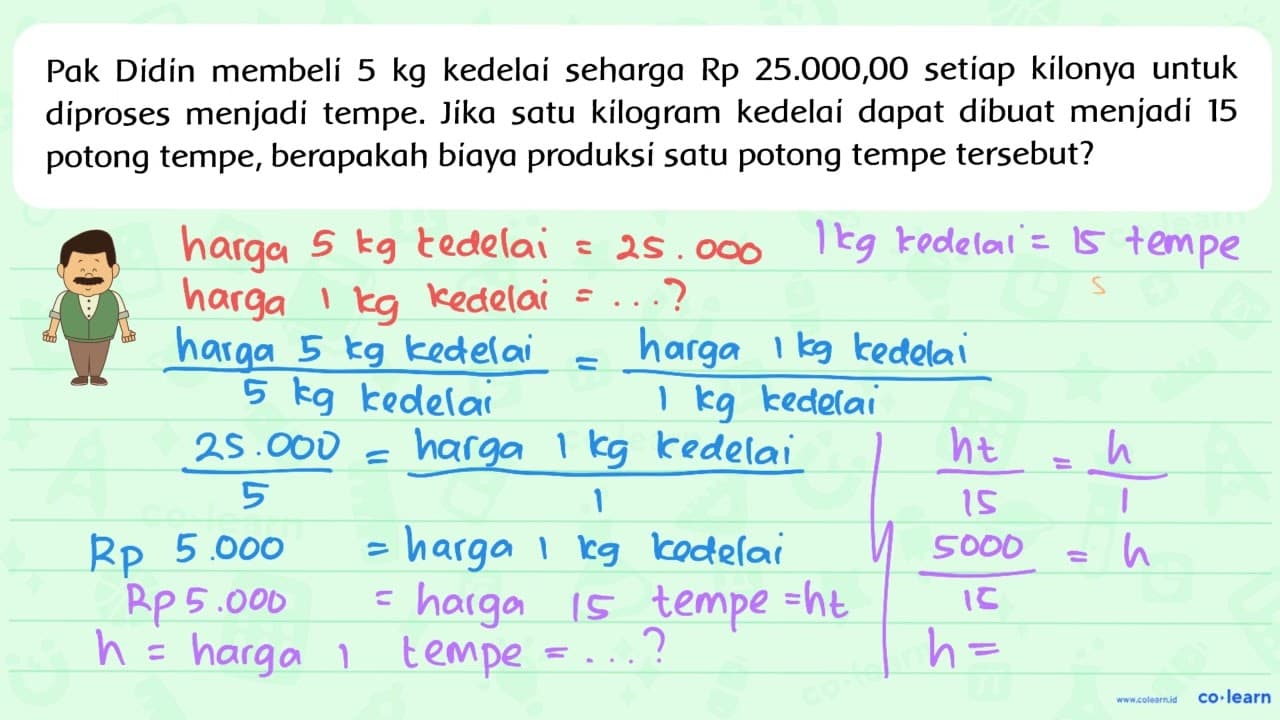 Pak Didin membeli 5 kg kedelai seharga Rp 25.000,00 setiap kilonya untuk
diproses menjadi tempe. Jika satu kilogram kedelai dapat dibuat menjadi 15
potong tempe, berapakah biaya produksi satu potong tempe tersebut?
harga 5 kg kedelai = 25.000
1 kg kedelai = 15 tempe
harga 1 kg kedelai = ...?
s
harga 5 kg kedelai / 5 kg kedelai = harga 1 kg kedelai / 1 kg kedelai
25.000 / 5 = harga 1 kg kedelai / 1
Rp 5.000 = harga 1 kg kedelai
Rp 5.000 = harga 15 tempe = ht
h = harga 1 tempe = ...?
ht / 15 = h / 1
5000 / 15 = h
h =
co·learn
www.colearn.id co·learn